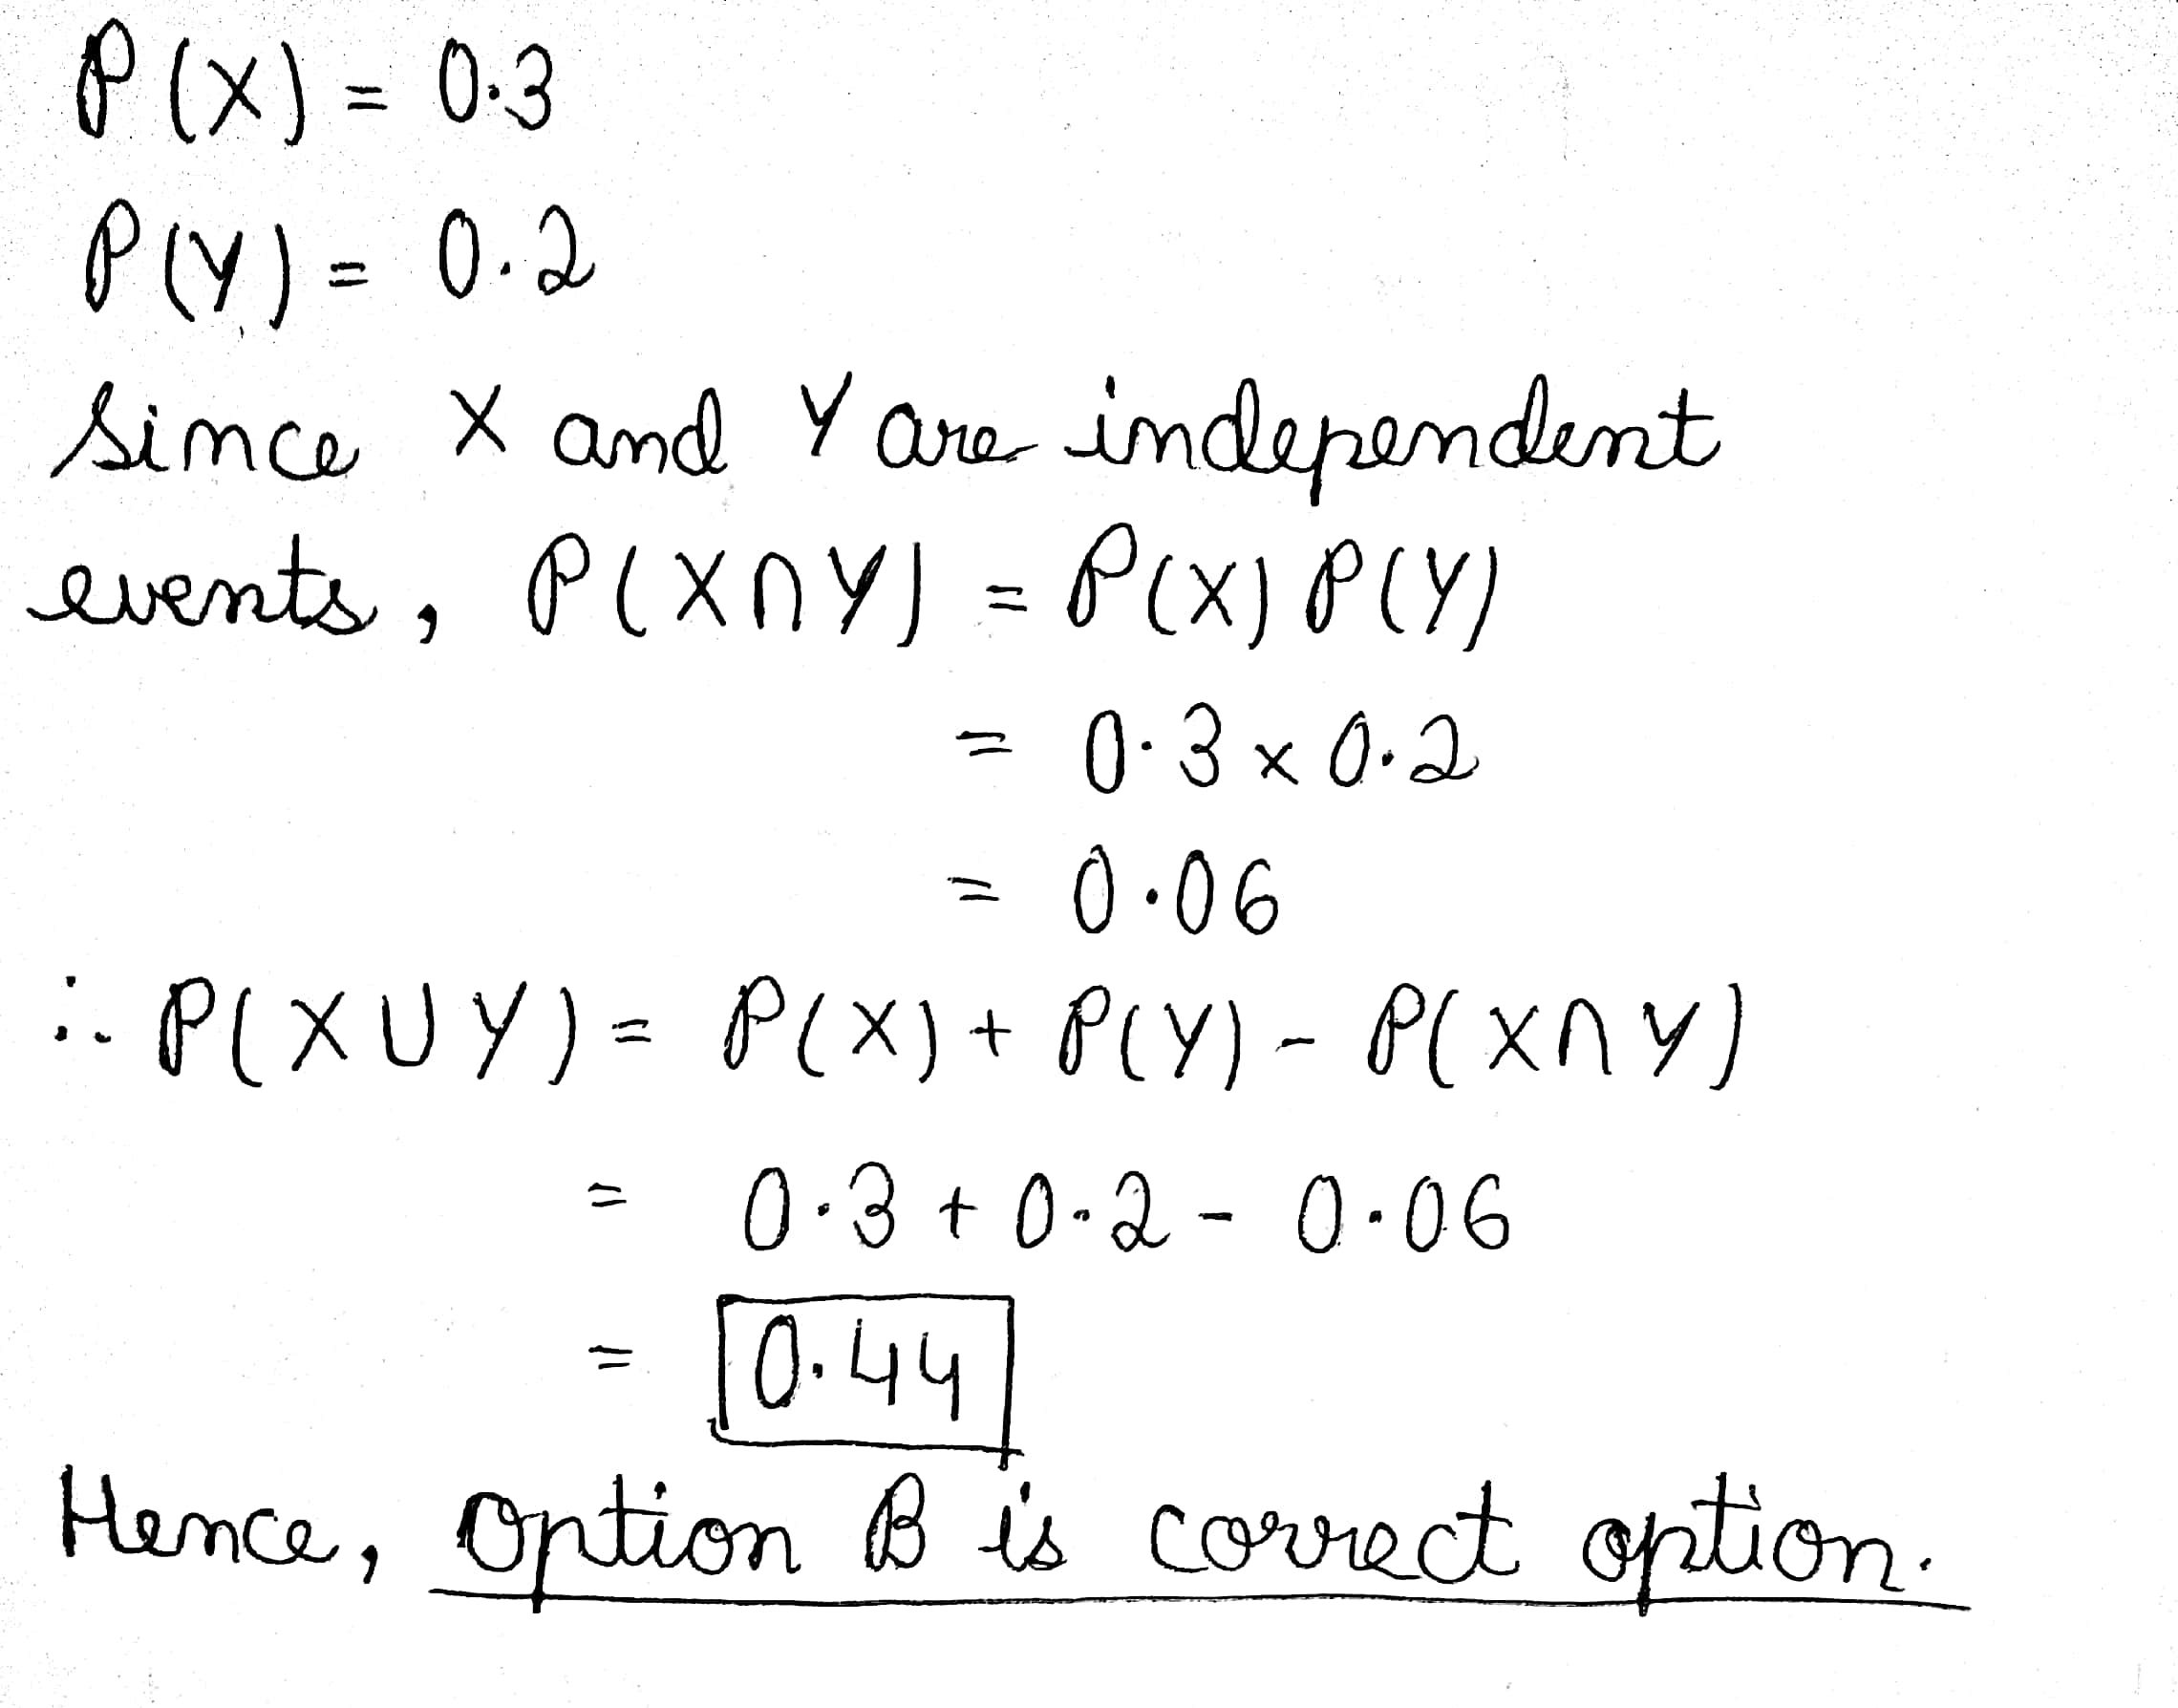 P(X) = 0.3
P(Y) = 0.2
Since X and Y are independent
events, P(X∩Y) = P(X) P(Y)
= 0.3 × 0.2
= 0.06
∴ P(X∪Y) = P(X) + P(Y) - P(X∩Y)
= 0.3 + 0.2 - 0.06
= 0.44
Hence, Option B is correct option.